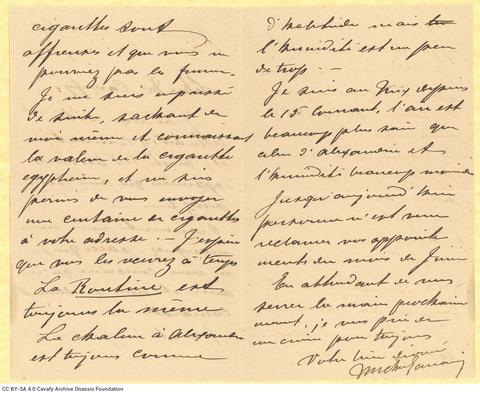 cigarettes sont
affreuses et que vous ne
pouviez pas les fumer.
Je me suis empressé
de suite, sachant de
moi même et connaissant
la valeur de la cigarette
egyptienne, et me suis
permis de vous envoyer
une centaine de cigarettes
à votre adresse. — J'espère
que vous les recevrez à temps
La Routine est
toujours la même
La chaleur à Alexandrie
est toujours comme
d'habitude mais
l'humidité est un peu
de trop. —
Je suis au depuis
le 15 Courant, l'air est
beaucoup plus sain que
celui d'Alexandrie et
l'humidité beaucoup moindre
Jusqu'aujourd'hui
personne n'est venu
reclamer vos appointe
ments du mois de Juin
En attendant de vous
serrer la main prochaine
ment, je vous prie de
me croire pour toujours
Votre bien devoué
CC BY-SA 4.0 Cavafy Archive Onassis Foundation